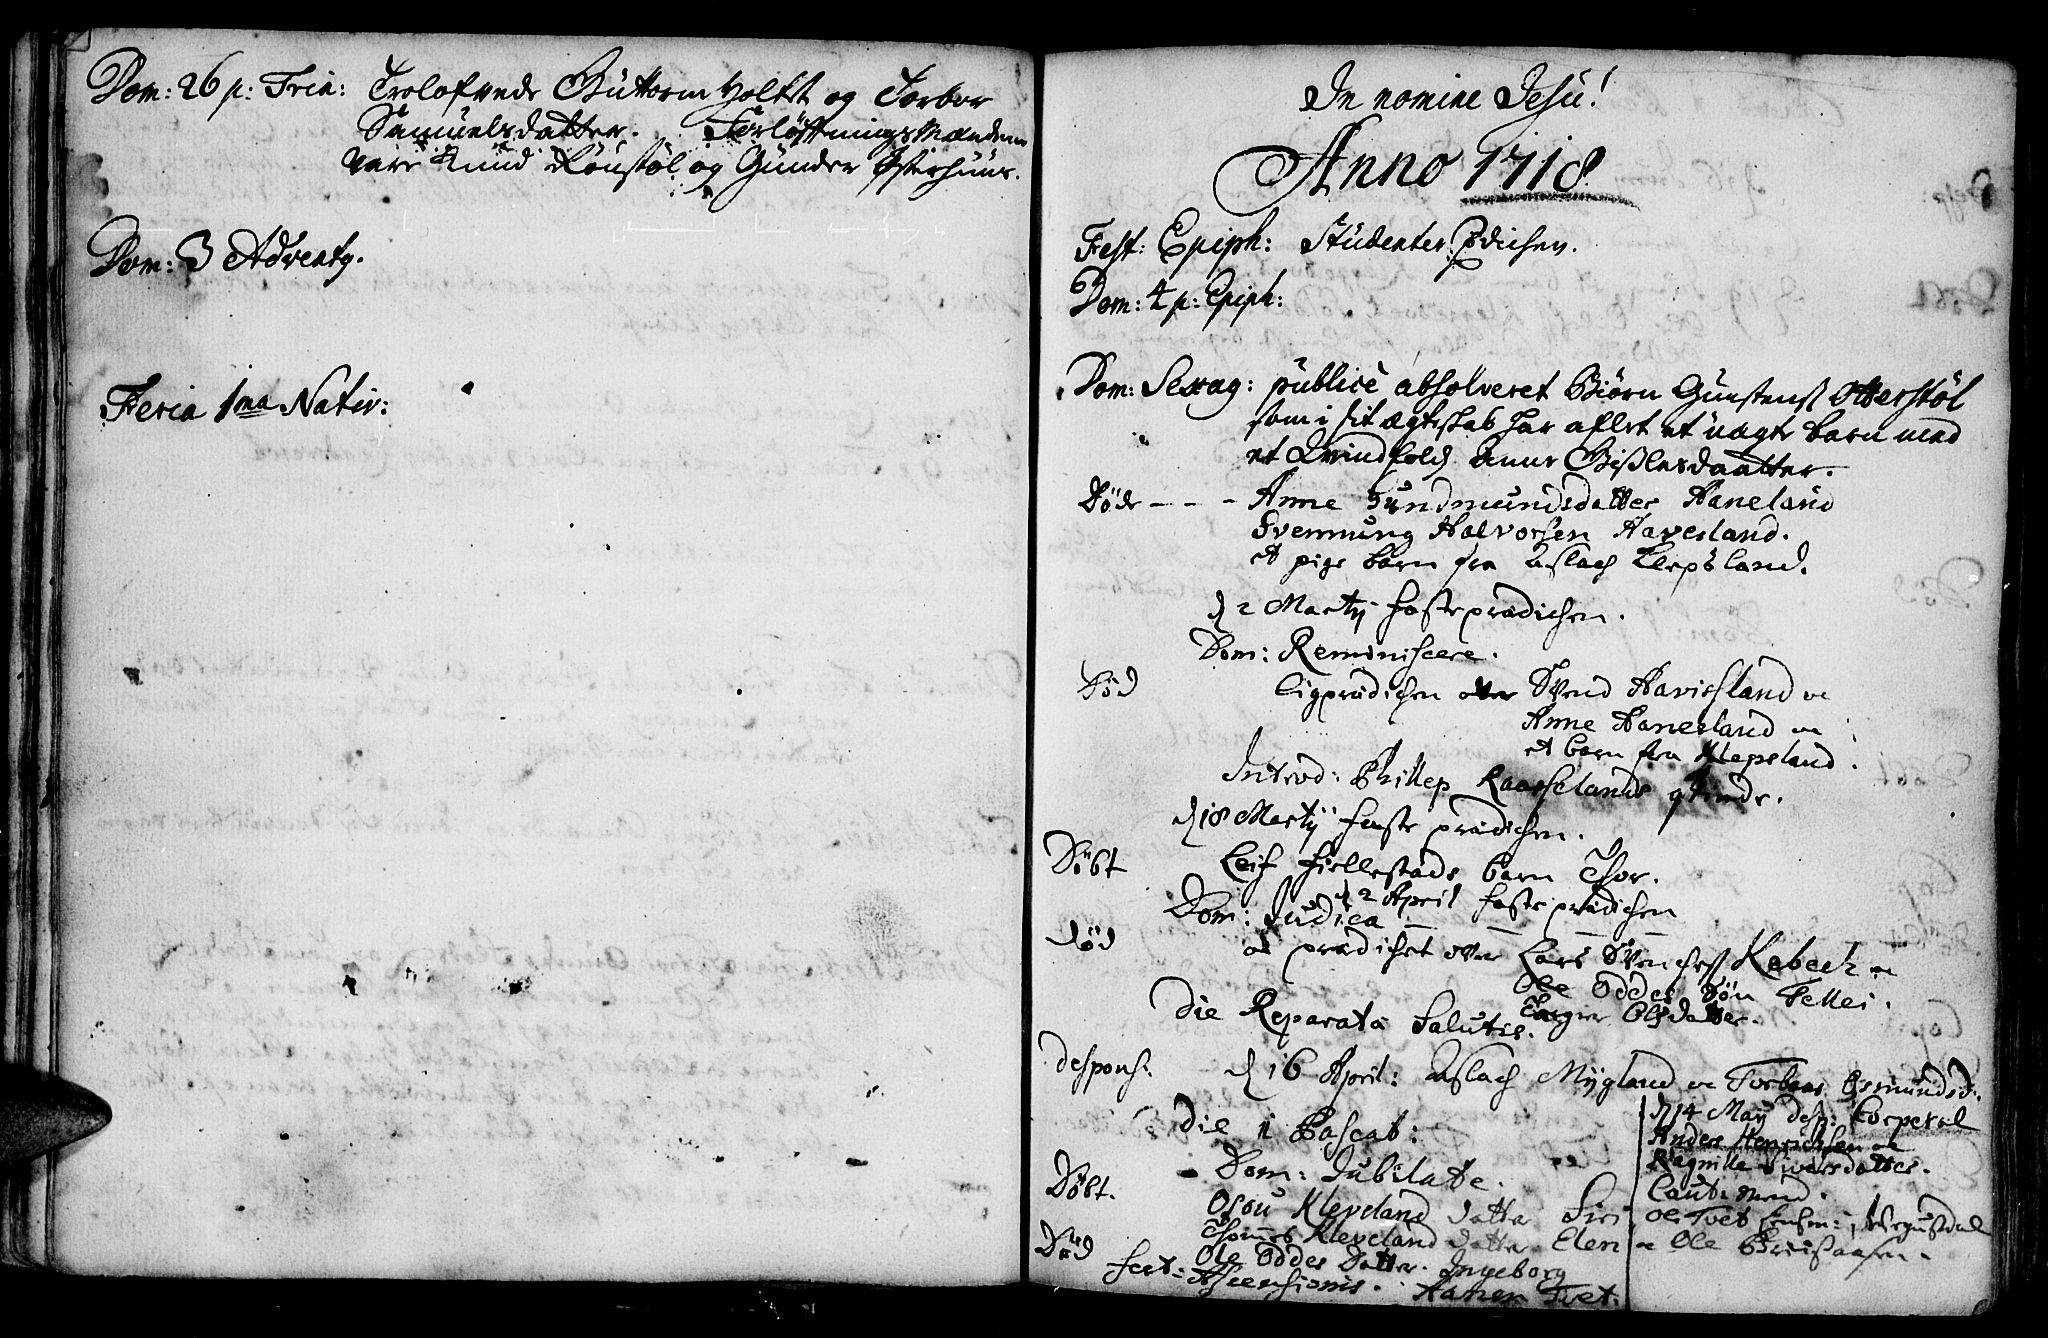 Dom: 26 p: Trin: Trolofvede Guttorm Holtet og Torbor
Samuelsdatter. Forlöftningsmændene
vare Knud Rönstöl og Gunder Østerhuus.
Dom: 3 Adventy.
Feria 1ma Nativ:
In nomine Jesu!
Anno 1718
Fest: Epiph: Studenter prædichen.
Dom: 4 p: Epiph:
Dom: Sexag: publice absolveret Biørn Gunstens
som i sit ægteskab har aflet et uægte barn med
et Qvindfolch Anne Gislesdaatter.
Döde - - - Anne Gundmundsdatter Haneland
Svennung Halvorsen Haverland.
et pige barn fra Aslach Klepsland.
d 2 Martij faste prædichen.
Dom: Reminiscere.
Död Ligprædichen over Svend Haversland oc
Anne Hanesland oc
et barn fra Klepsland.
Introd: Phillep Raasselands qvinde.
d 18 Martij faste prædichen.
Döbt Leif Fiellestads barn Thor.
d 2 April faste prædichen
Dom: Judica
Död oc prædichet over Lars Svenches Kebech oc
Ole Oddes Sön Tellei.
Olsdatter.
Die Reparatæ Salutis.
despons: d 16 April: Aslach Mygland oc Torbor Osmundsd:
Die ii Pascat:
d 14 May desp: Corperal
Anders Henrichsen oc
Ragnille Siversdatter.
Caut: mend.
Ole Tvet
oc Ole
Dom: Jubilate.
Döbt. Osou Kleveland datter Siri
Thommes Kleveland datter Elen
Död Ole Oddes Datter. Ingeborg
Fest: Ascensionis. Tvet.